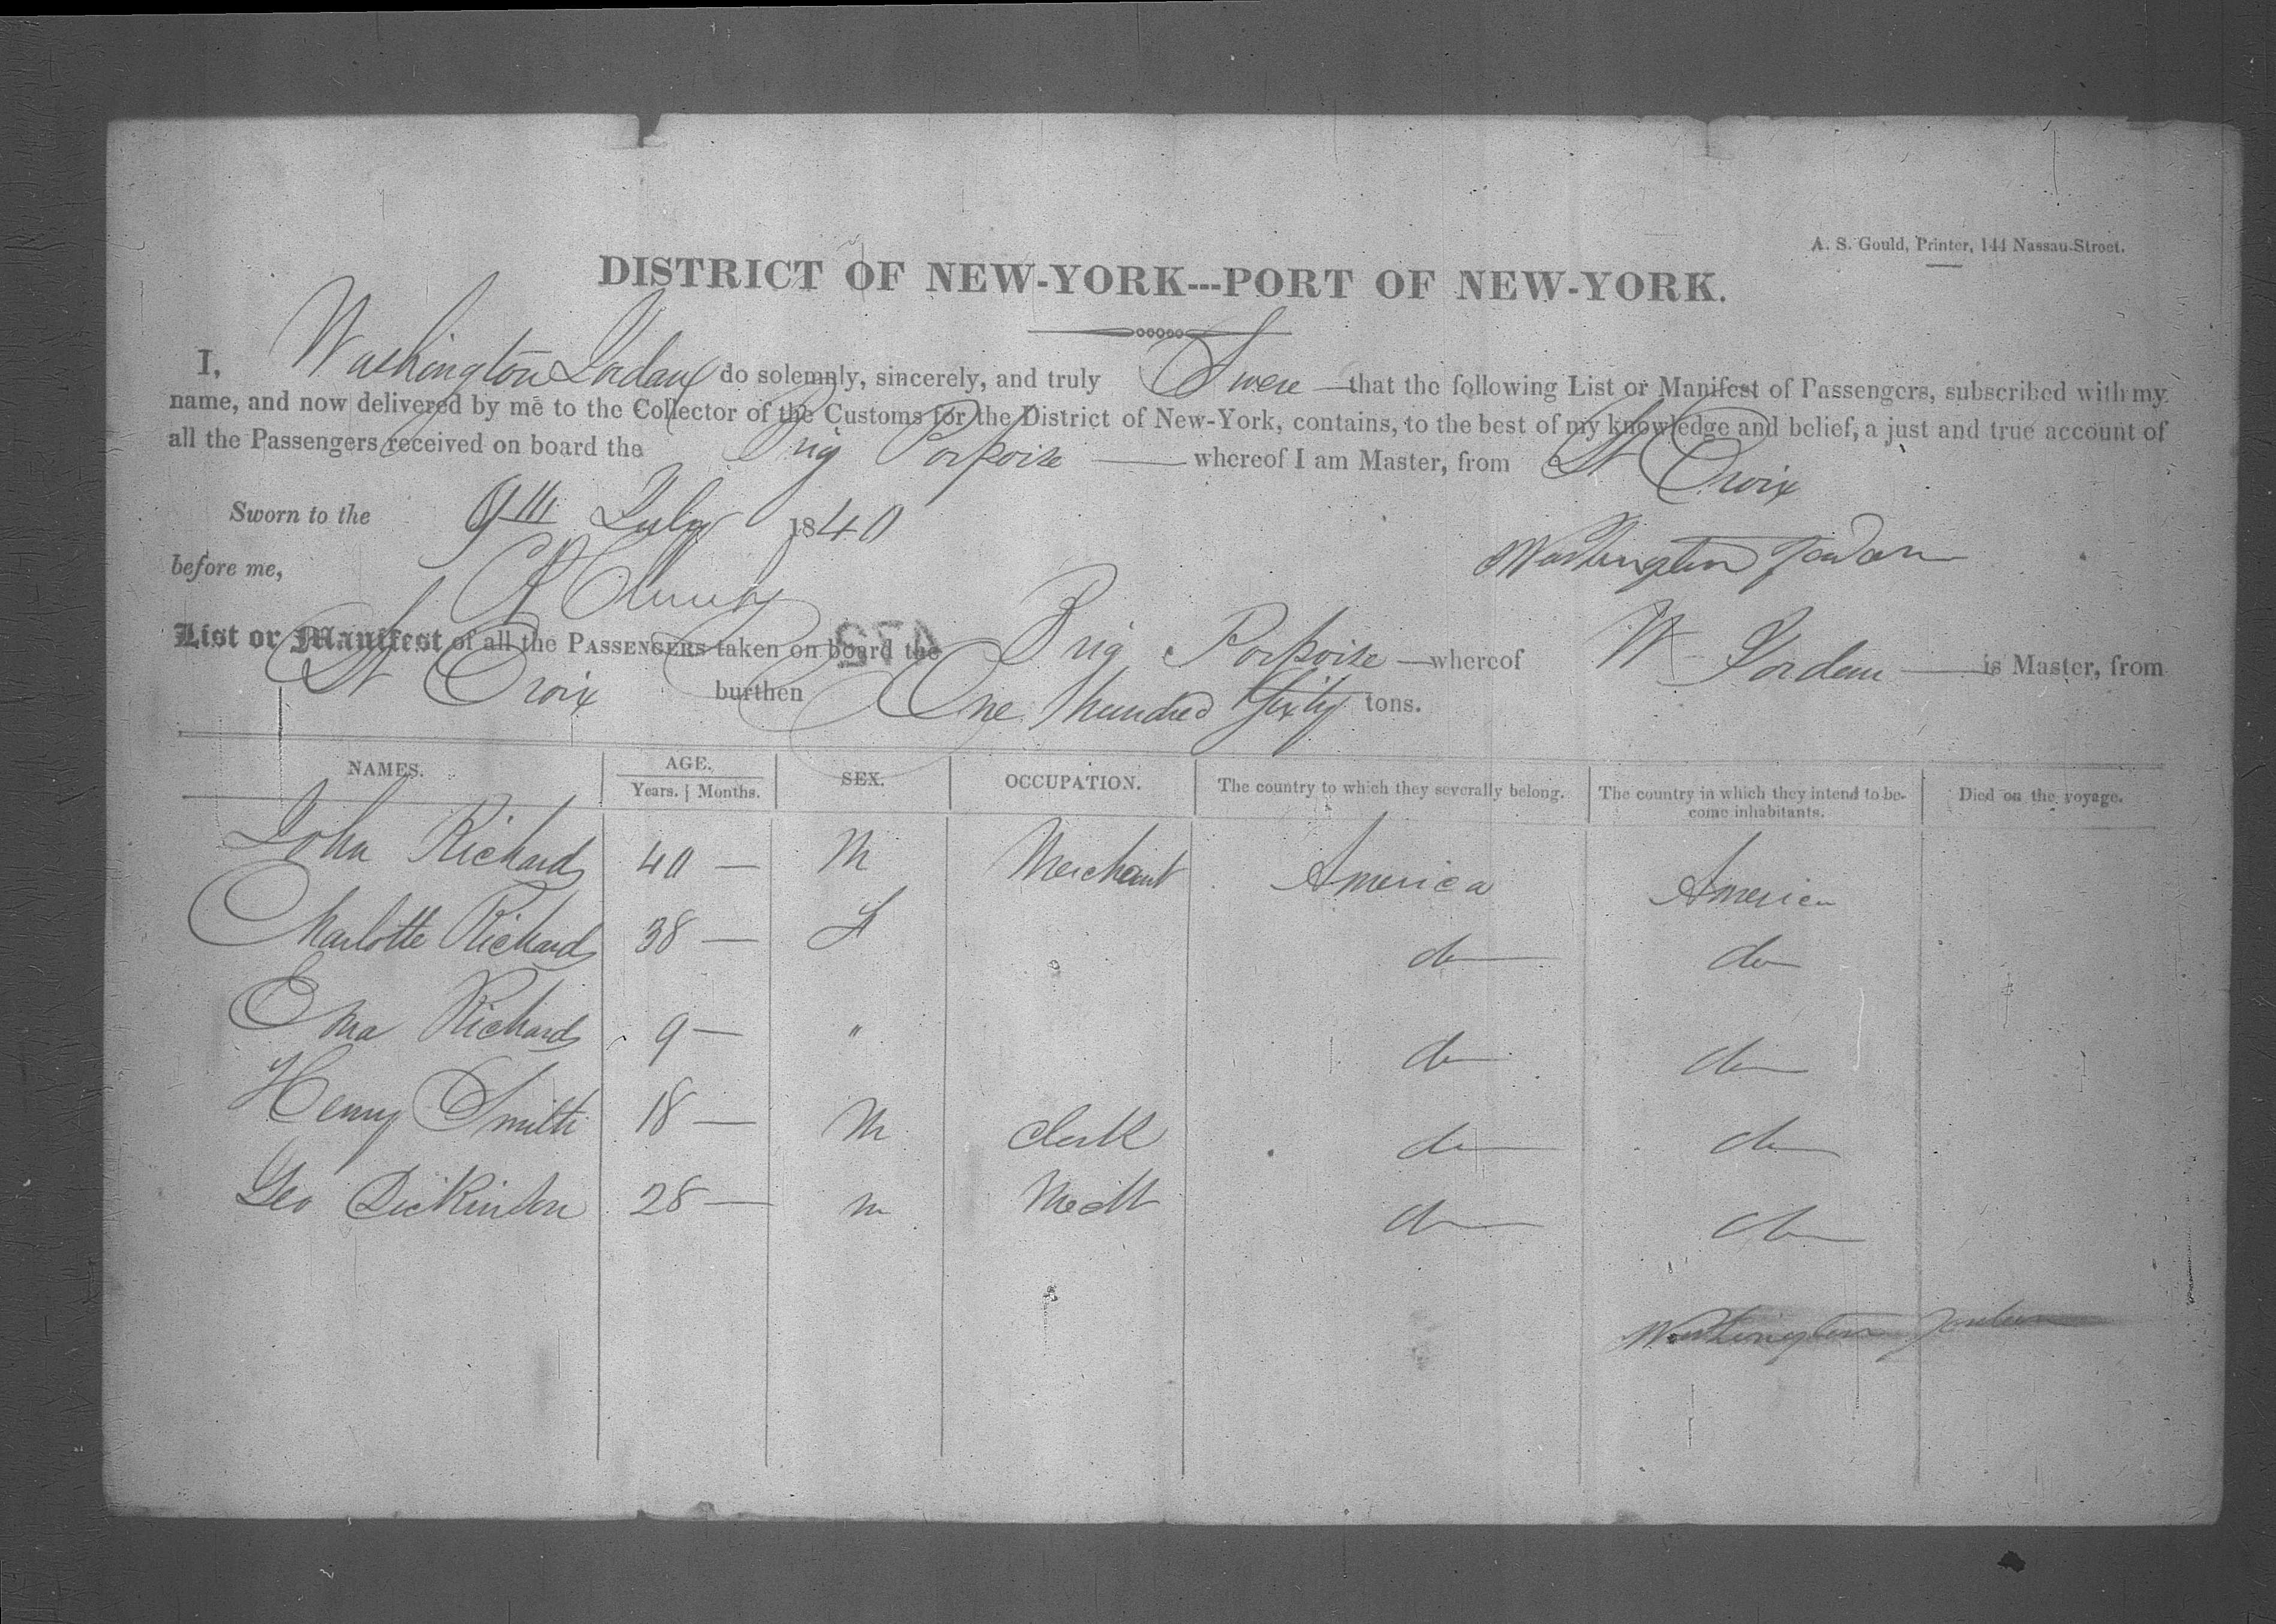 A. S. Gould, Printer, 144 Nassau-Street.
DISTRICT OF NEW-YORK---PORT OF NEW-YORK.
I, Washington Jordan do solemnly, sincerely, and truly Swere that the following List or Manifest of Passengers, subscribed with my
name, and now delivered by me to the Collector of the Customs for the District of New-York, contains, to the best of my knowledge and belief, a just and true account of
all the Passengers received on board the Brig Porpoise whereof I am Master, from St Croix
Sworn to the 9th July 1840
Washington Jordan
before me,
List or Manifest of all the PASSENGERS taken on board the Brig Porpoise whereof W Jordan is Master, from
St Croix burthen One hundred Sixty tons.
NAMES. AGE. SEX. OCCUPATION. The country to which they severally belong. The country in which they intend to be- Died on the voyage.
Years. Months. come inhabitants.
John Richards 40 — M Merchant America America
Charlotte Richards 38 — F do do
Ema Richards 9 — " do do
Henry Smith 18 — M Clerk do do
Geo Dickinson 28 — m do do
Washington Jordan